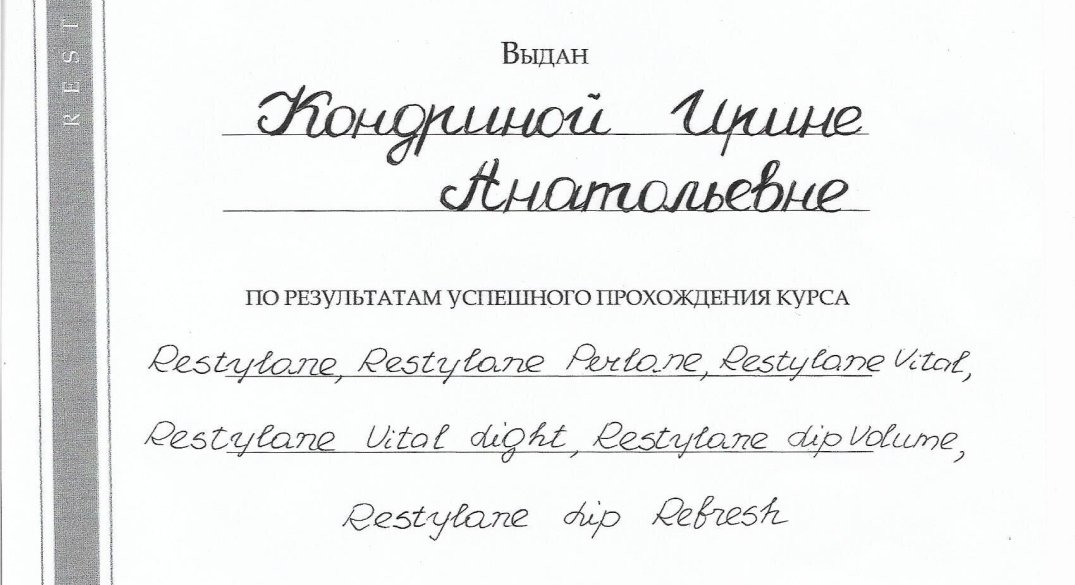 REST
Выдан
Кондриной Ирине
Анатольевне
ПО РЕЗУЛЬТАТАМ УСПЕШНОГО ПРОХОЖДЕНИЯ КУРСА
Restylane, Restylane Perlane, Restylane Vital,
Restylane Vital Light, Restylane Lip Volume,
Restylane Lip Refresh